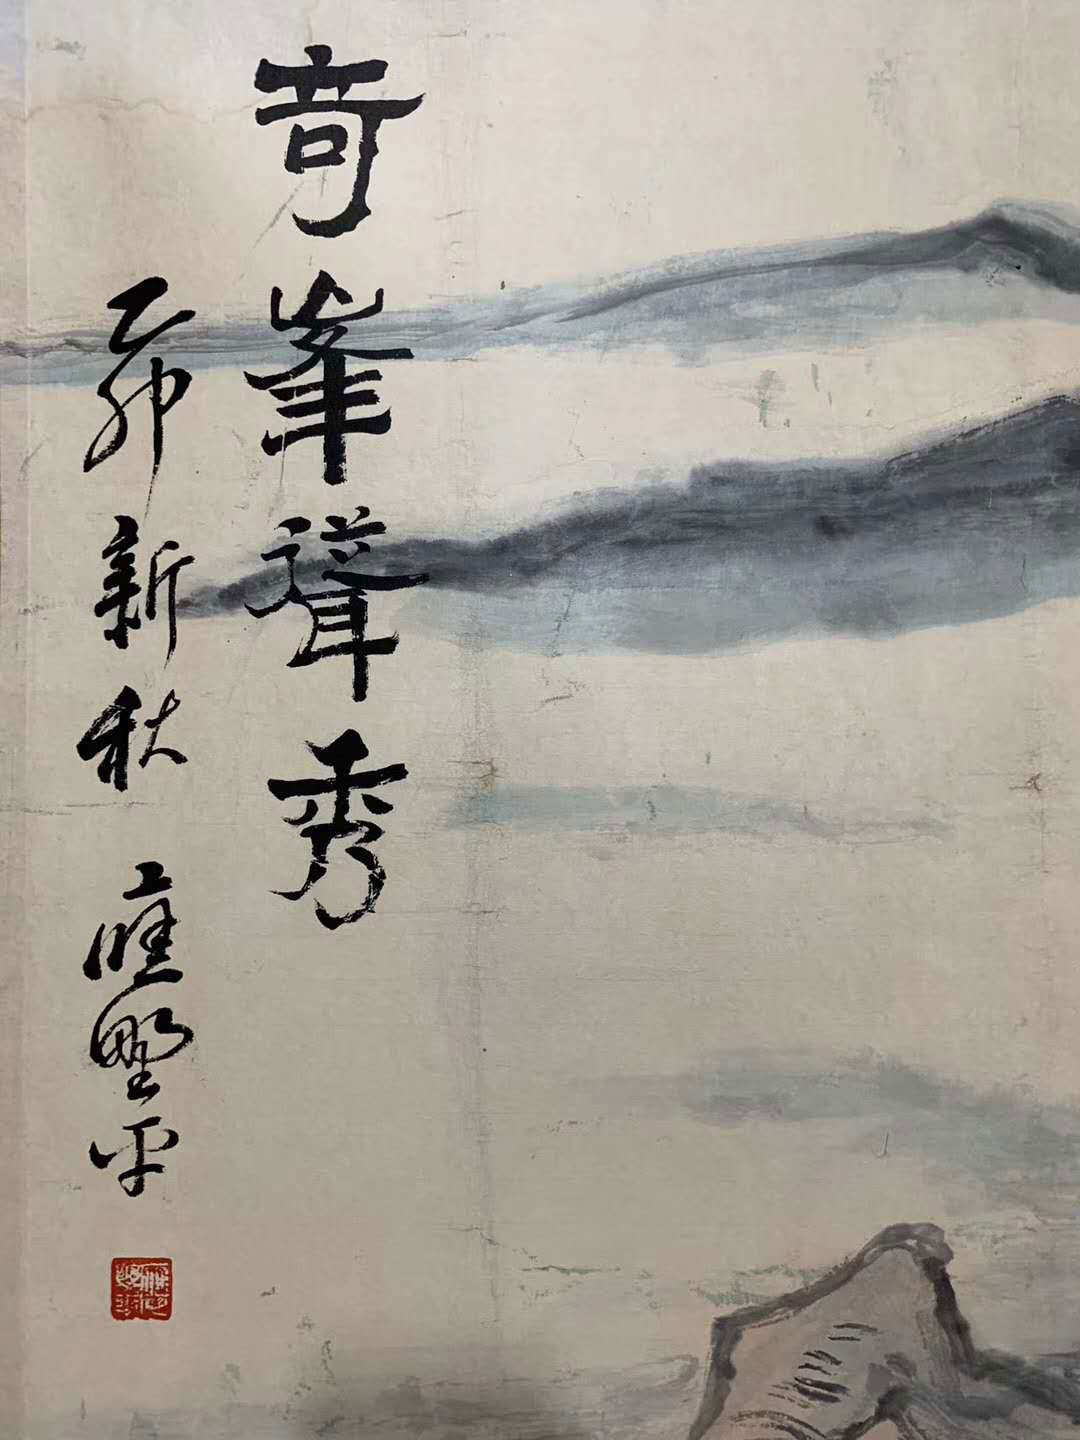 竒峯聳秀
乙卯新秋 應野平